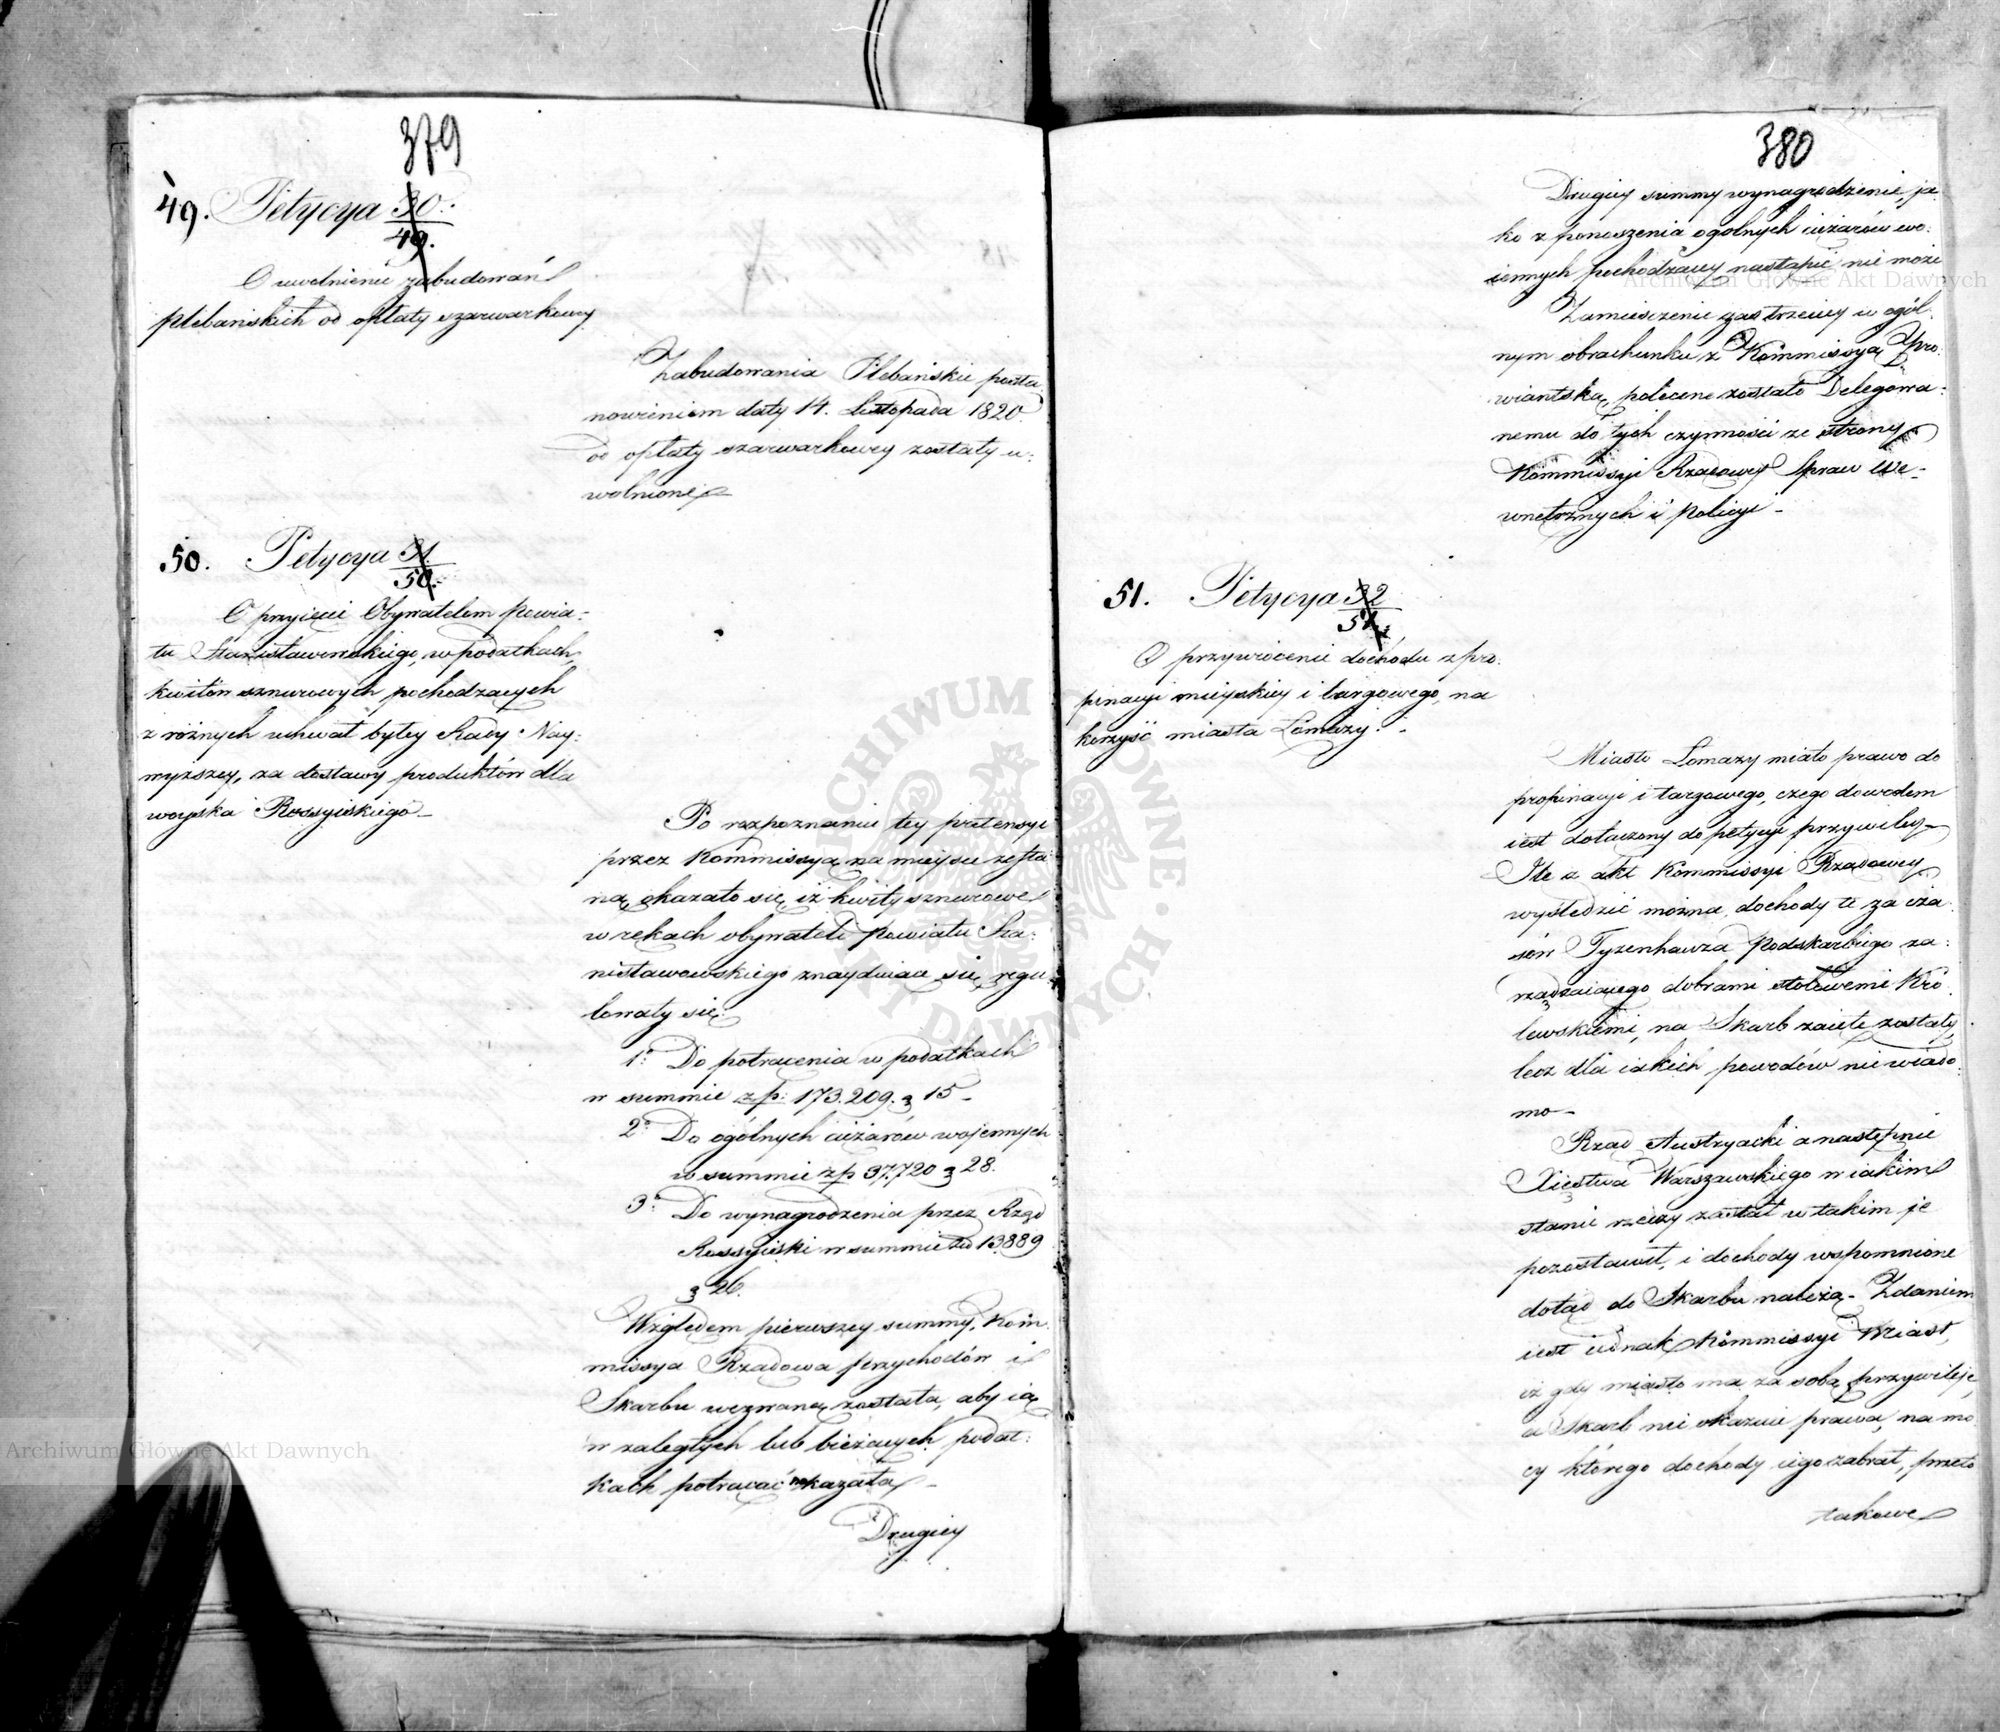 379
49. Petycya 30.
49.
O uwolnienie zabudowań
plebańskich od opłaty szarwarkowey
Zabudowania Plebańskie posta,
nowieniem daty 14. Listopada 1820
od opłaty szarwarkowey zostały u,
wolnione
50. Petycya 31
50.
O przyięcie Obywatelom Powia,
tu Stanisławowskiego, w podatkach,
kwitów sznurowych pochodzących
z różnych uchwał byłey Rady Nay,
wyższey, za dostawy produktów dla
woyska Rossyiskiego
Po rozpoznaniu tey pretensyi
przez Kommissyą na mieyscu zesła
ną, okazało się, iż kwity sznurowe
w rękach obywateli Powiatu Sta,
nisławowskiego znayduiące się, regu
lowały się.
1° Do potrącenia w podatkach
w summie zp: 173.209. 15
2° Do ogólnych ciężarów wojennych
w summie zp 37.720 28.
3° Do wynagrodzenia przez Rząd
Rossyiski w summie 13889
26.
Względem pierwszey summy, Kom
missya Rządowa przychodów i
Skarbu wezwaną została, aby ią
w zaległych lub bieżących podat,
kach potrącać kazała
Drugiey
380
Drugiey summy wynagrodzenie, ja,
ko z ponoszenia ogólnych ciężarów wo,
iennych pochodzącey nastąpić nie może
Zamieszczenie zaś trzeciey w ogól,
nym obrachunku z Kommissyą Pro,
wiantską, polecone zostało Delegowa,
nemu do tych czynności ze strony
Kommissyi Rządowey Spraw We,
wnętrznych i Policyi
51. Petycya 32
51.
O przywrócenie dochodu z pro,
pinacyi mieyskiey i targowego, na
korzyść miasta Łomazy.
Miasto Łomazy miało prawo do
propinacyi i targowego, czego dowodem
iest dołączony do petycyi przywiley
Ile z akt Kommissyi Rządowey
wyśledzić można, dochody te za cza
sów Tyzenhauza Podskarbiego za,
rządzaiącego dobrami stołowemi Kró,
lewskiemi, na Skarb zaięte zostały,
lecz dla iakich powodów nie wiado
mo
Rząd Austryacki a następnie
Xięstwa Warszawskiego w iakim
stanie rzeczy zastał w takim je
pozostawił, i dochody wspomnione
dotąd do Skarbu należą. Zdaniem
iest iednak Kommissyi Miast,
iż gdy miasto ma za sobą przywileje,
a Skarb nie okazuie prawa, na mo
cy którego dochody iego zabrał, przeto
takowe
Archiwum Główne Akt Dawnych
Archiwum Główne Akt Dawnych
ARCHIWUM GŁÓWNE AKT DAWNYCH